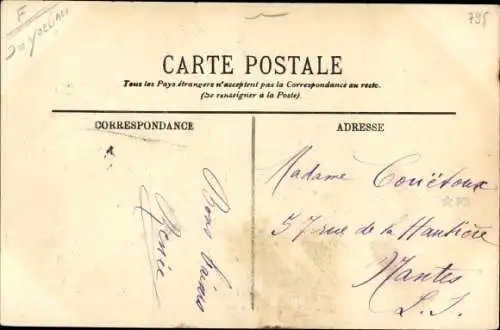 F
795
CARTE POSTALE
Tous les Pays étrangers n'acceptent pas la Correspondance au recto.
(Se renseigner à la Poste)
CORRESPONDANCE
ADRESSE
Bons baisers
Renée
Madame Couëtoux
37 rue de la Hautière
Nantes
L. I.